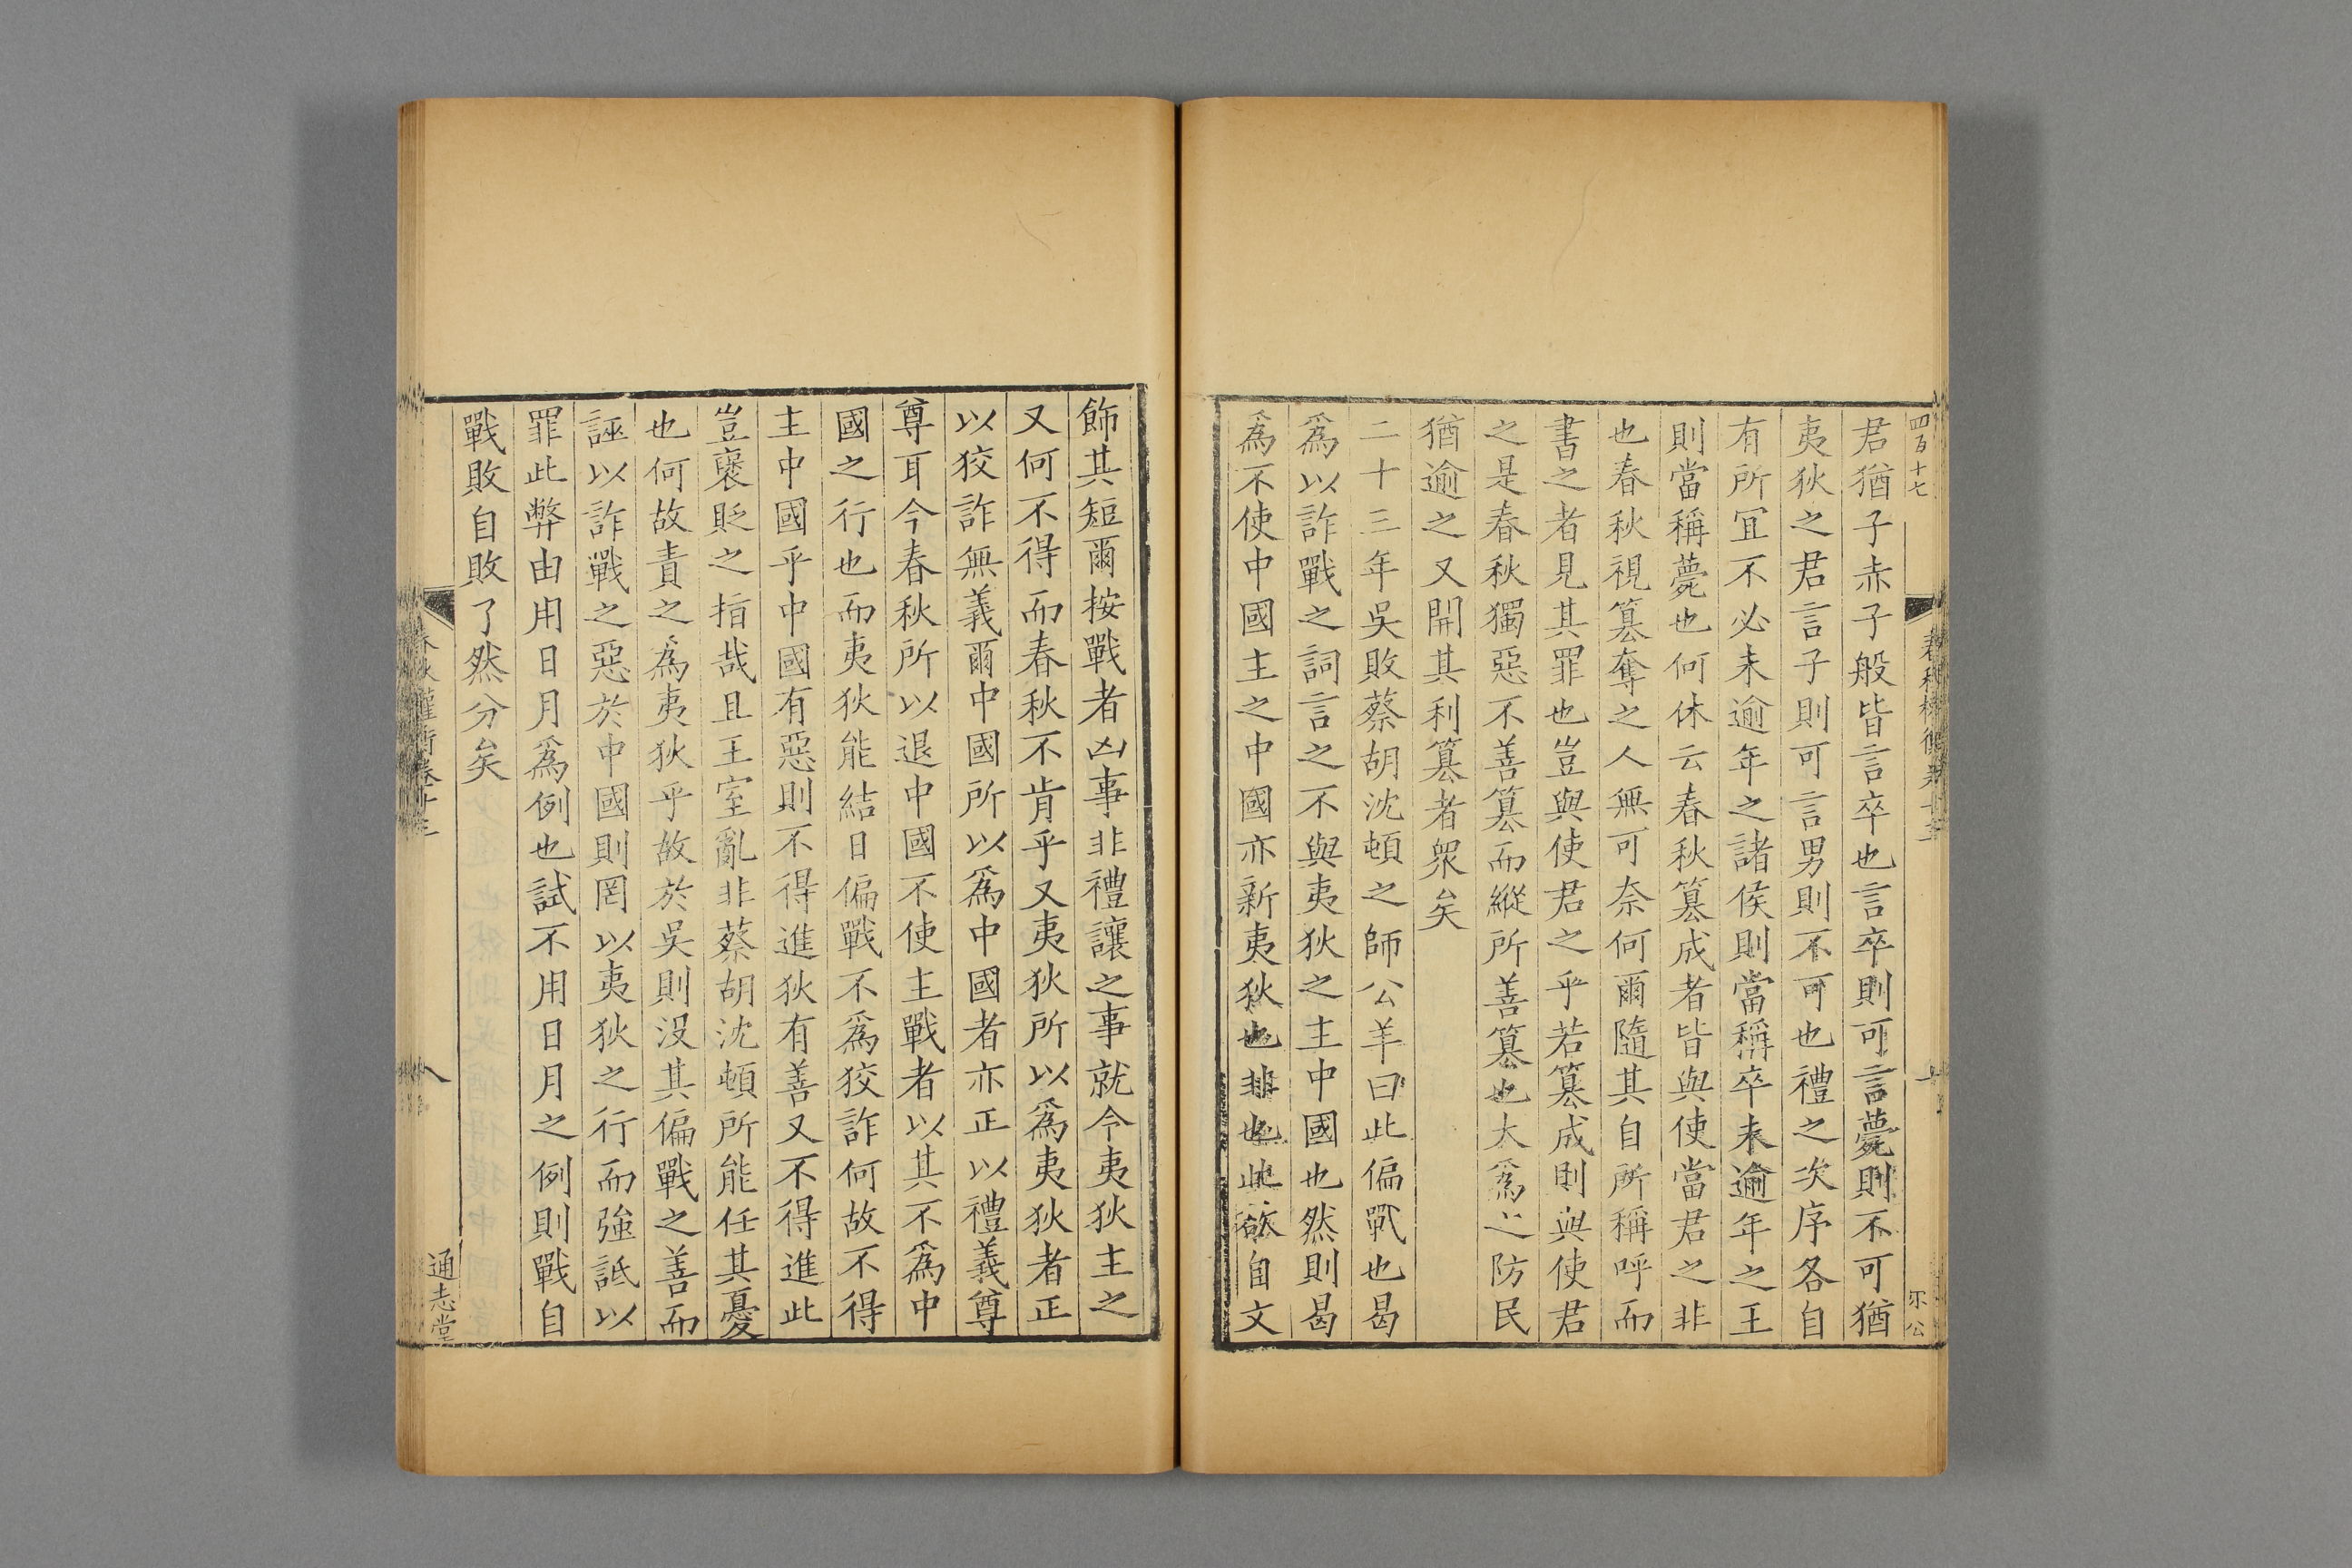 四百十七
君猶子赤子般皆言卒也言卒則可言薨則不可猶
夷狄之君言子則可言男則不可也禮之次序各自
有所冝不必未逾年之諸侯則當稱卒未逾年之王
則當稱薨也何休云春秋篡成者皆與使當君之非
也春秋視篡奪之人無可奈何爾隨其自所稱呼而
書之者見其罪也豈與使君之乎若篡成則與使君
之是春秋獨惡不善篡而縱所善篡也大爲之防民
猶逾之又開其利篡者衆矣
二十三年吳敗蔡胡沈頓之師公羊曰此偏戰也曷
爲以詐戰之詞言之不與夷狄之主中國也然則曷
爲不使中國主之中國亦新夷狄也非也此欲自文
飾其短爾按戰者凶事非禮讓之事就今夷狄主之
又何不得而春秋不肯乎又夷狄所以爲夷狄者正
以狡詐無義爾中國所以爲中國者亦正以禮義尊
尊耳今春秋所以退中國不使主戰者以其不爲中
國之行也而夷狄能結日偏戰不爲狡詐何故不得
主中國乎中國有惡則不得進狄有善又不得進此
豈襃貶之指哉且王室亂非蔡胡沈頓所能任其憂
也何故責之爲夷狄乎故於吳則沒其偏戰之善而
誣以詐戰之惡於中國則罔以夷狄之行而強詆以
罪此弊由用日月爲例也試不用日月之例則戰自
戰敗自敗了然分矣
春秋權衡卷十三
八
通志堂